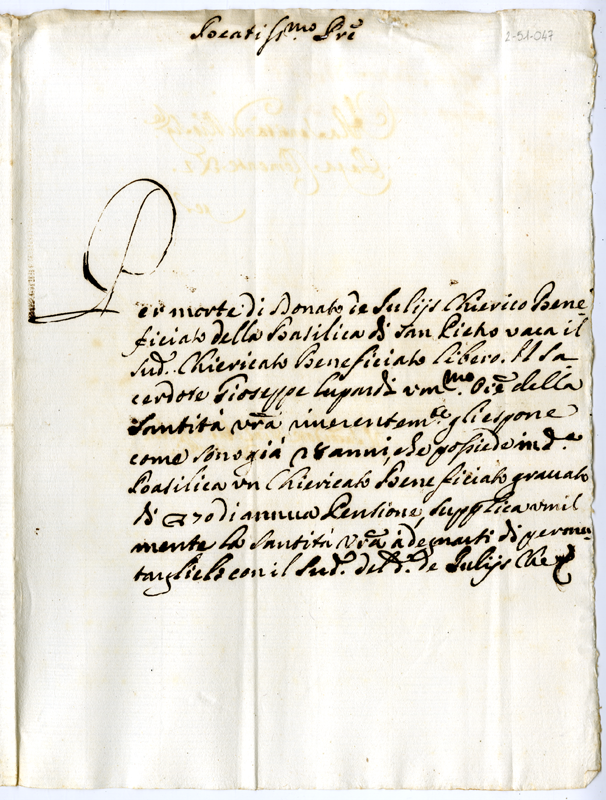 Beatiss.mo Pre
2-51-047
Per morte di Donato de Julijs Chierico Bene
ficiato della Basilica di San Pietro vaca il
sud. Chiericato Beneficiato libero. Il Sa
cerdote Gioseppe Lupardi um.mo Ore della
Santità vra riverentem.te gli espone
come sono già 28 anni, che possiede in d.a
Basilica un Chiericato Beneficiato gravato
di 70 di annua Pensione, supplica umil
mente la Santità vra à degnarsi di permu
targlielo con il sud. del d. de Julijs Che